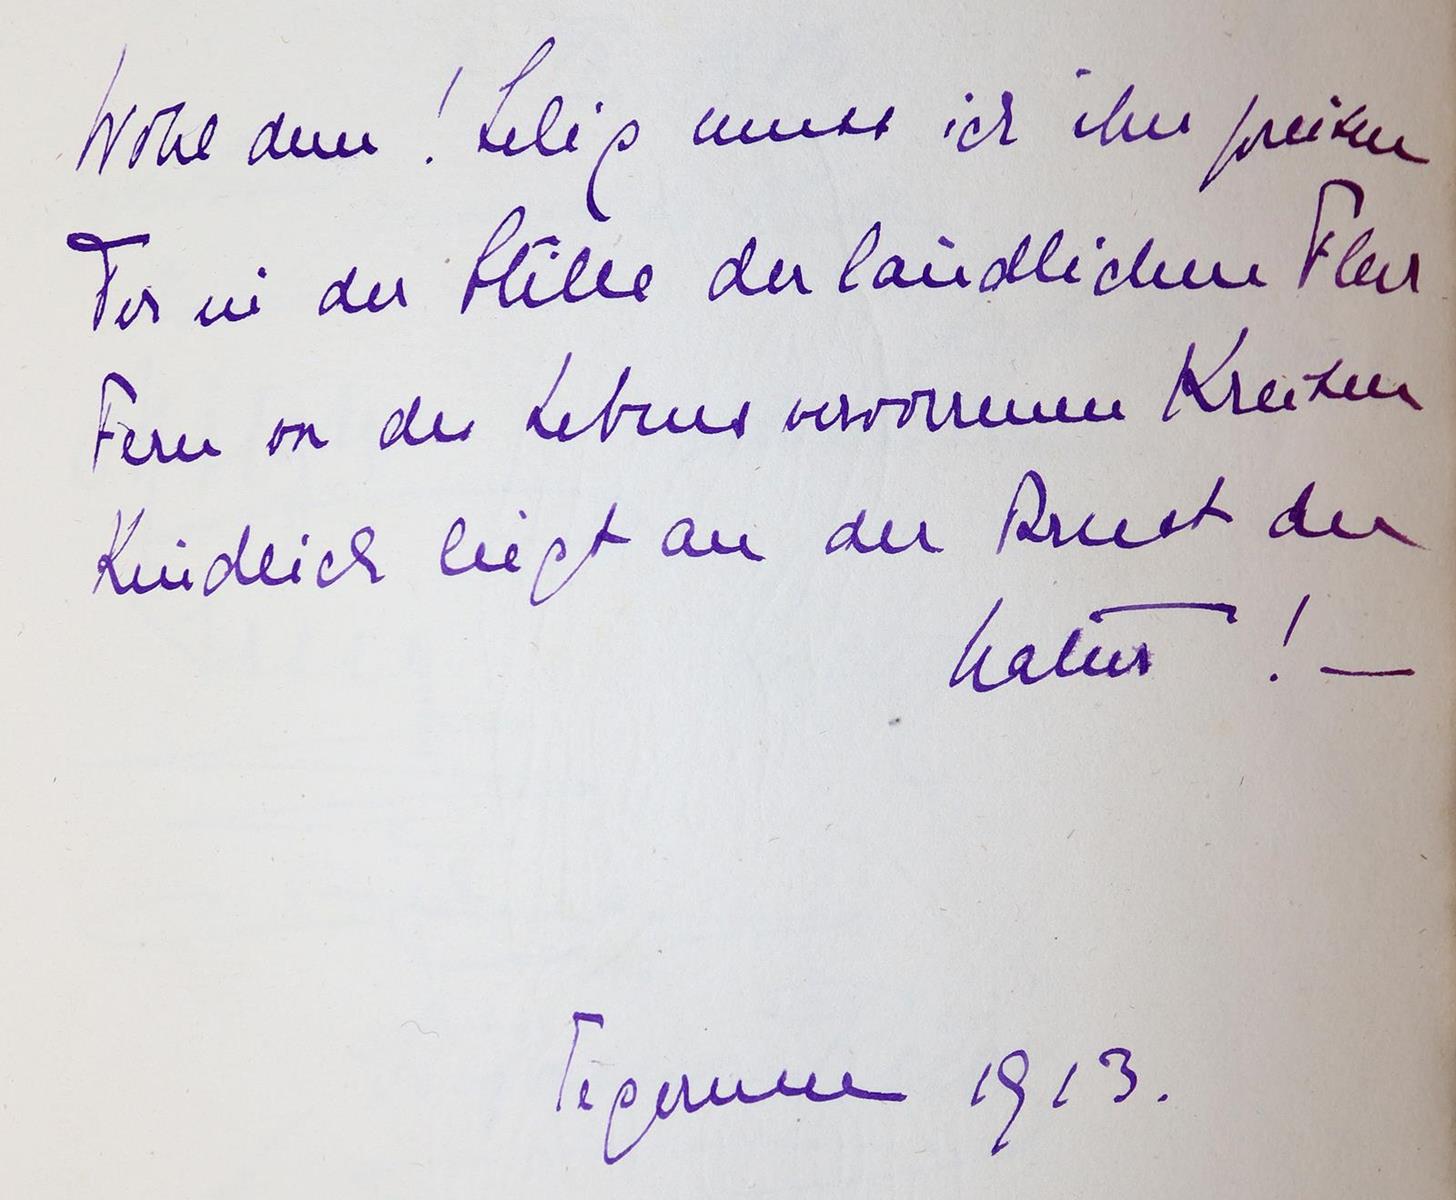 Wohl dem! Selig muss ich ihn preisen
Der in der Stille der ländlichen Flur
Fern von des Lebens verworrenen Kreisen
Kindlich liegt an der Brust der
Natur! —
Tegernsee 1913.